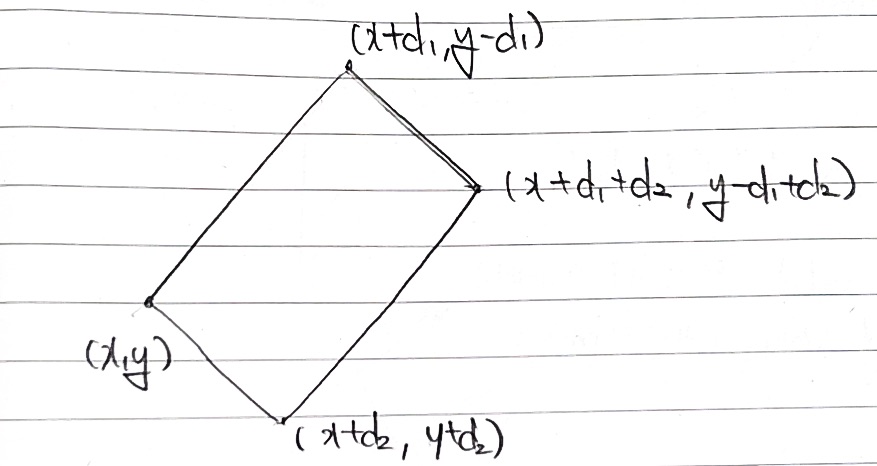 (x+d₁, y-d₁)
(x+d₁+d₂, y-d₁+d₂)
(x, y)
(x+d₂, y+d₂)